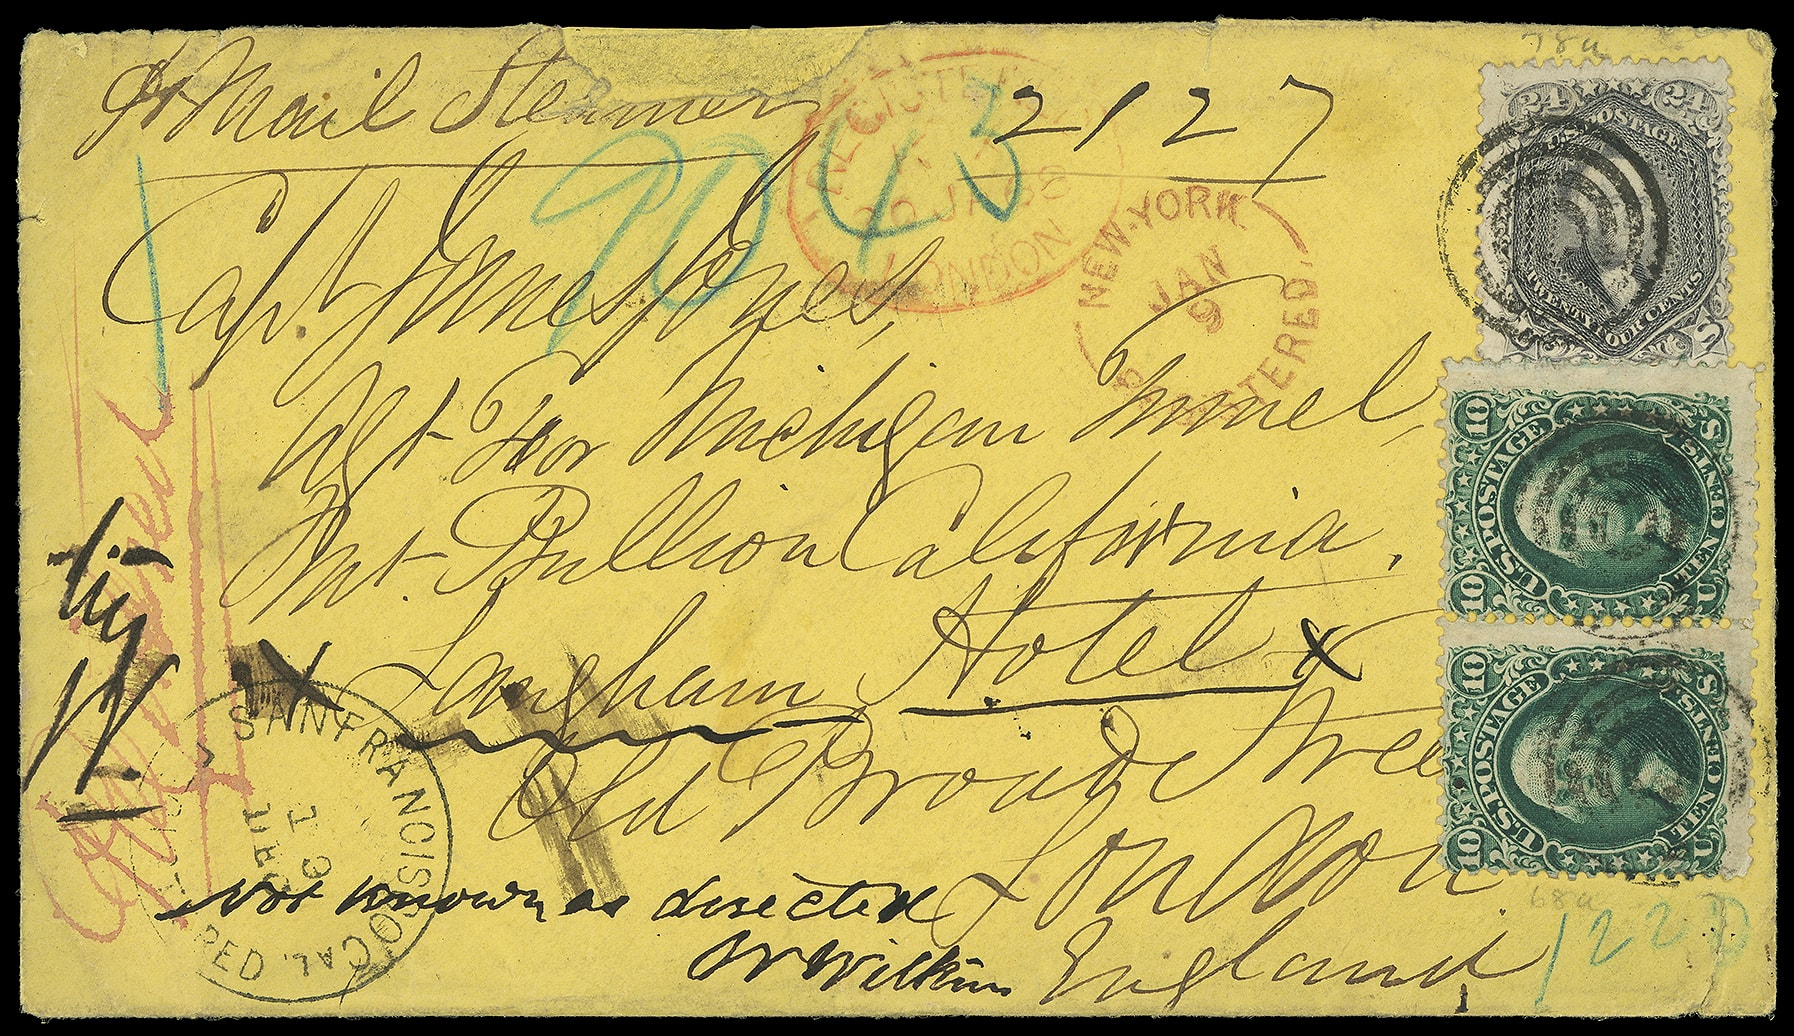 78a
pr Mail Steamer 2127
90 43
REGISTERED
20 JA 68
LONDON
NEW-YORK
JAN
9
REGISTERED.
Capt. James Jones,
Agt For Michigan Tunnel,
Mt Bullion California.
x Langham Hotel x
Old Broad Street
London
England
Not Known as directed
W Wilkins
SAN FRANCISCO CAL.
DEC
19
REGISTERED
Registered
24 24
U.S. POSTAGE
TWENTY FOUR CENTS
U S
10 10
U.S. POSTAGE
TEN CENTS
U S
10 10
U.S. POSTAGE
TEN CENTS
U S
68a
1220